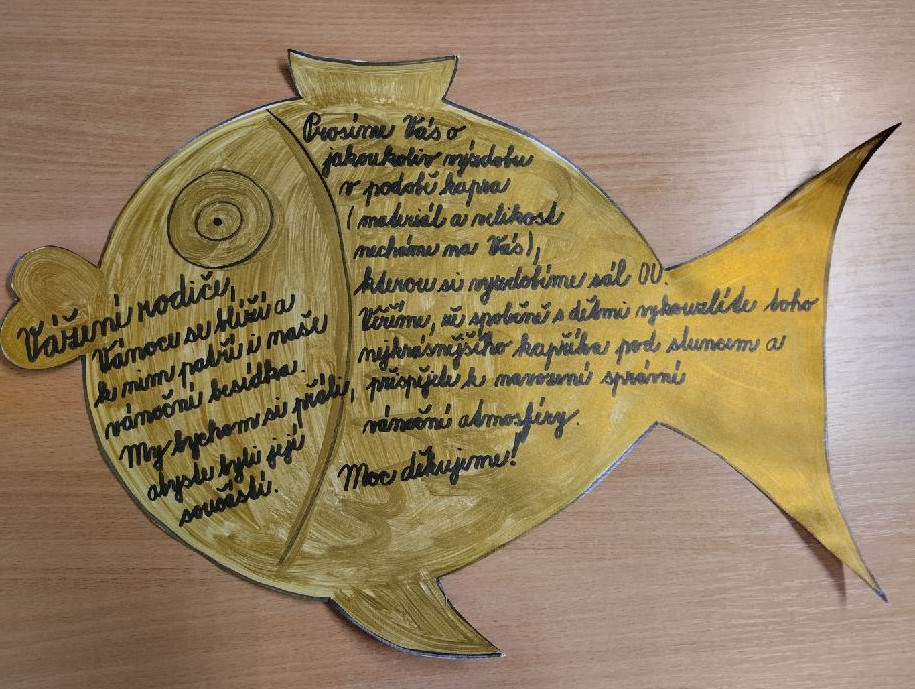 Vážení rodiče,
Vánoce se blíží a
k nim patří i naše
vánoční besídka.
My bychom si přáli,
abyste byli její
součástí.
Prosíme Vás o
jakoukoliv výzdobu
v podobě kapra
(materiál a velikost
necháme na Vás),
kterou si vyzdobíme sál OÚ.
Věříme, že společně s dětmi vykouzlíte toho
nejkrásnějšího kapříka pod sluncem a
přispějete k navození správné
vánoční atmosféry.
Moc děkujeme!